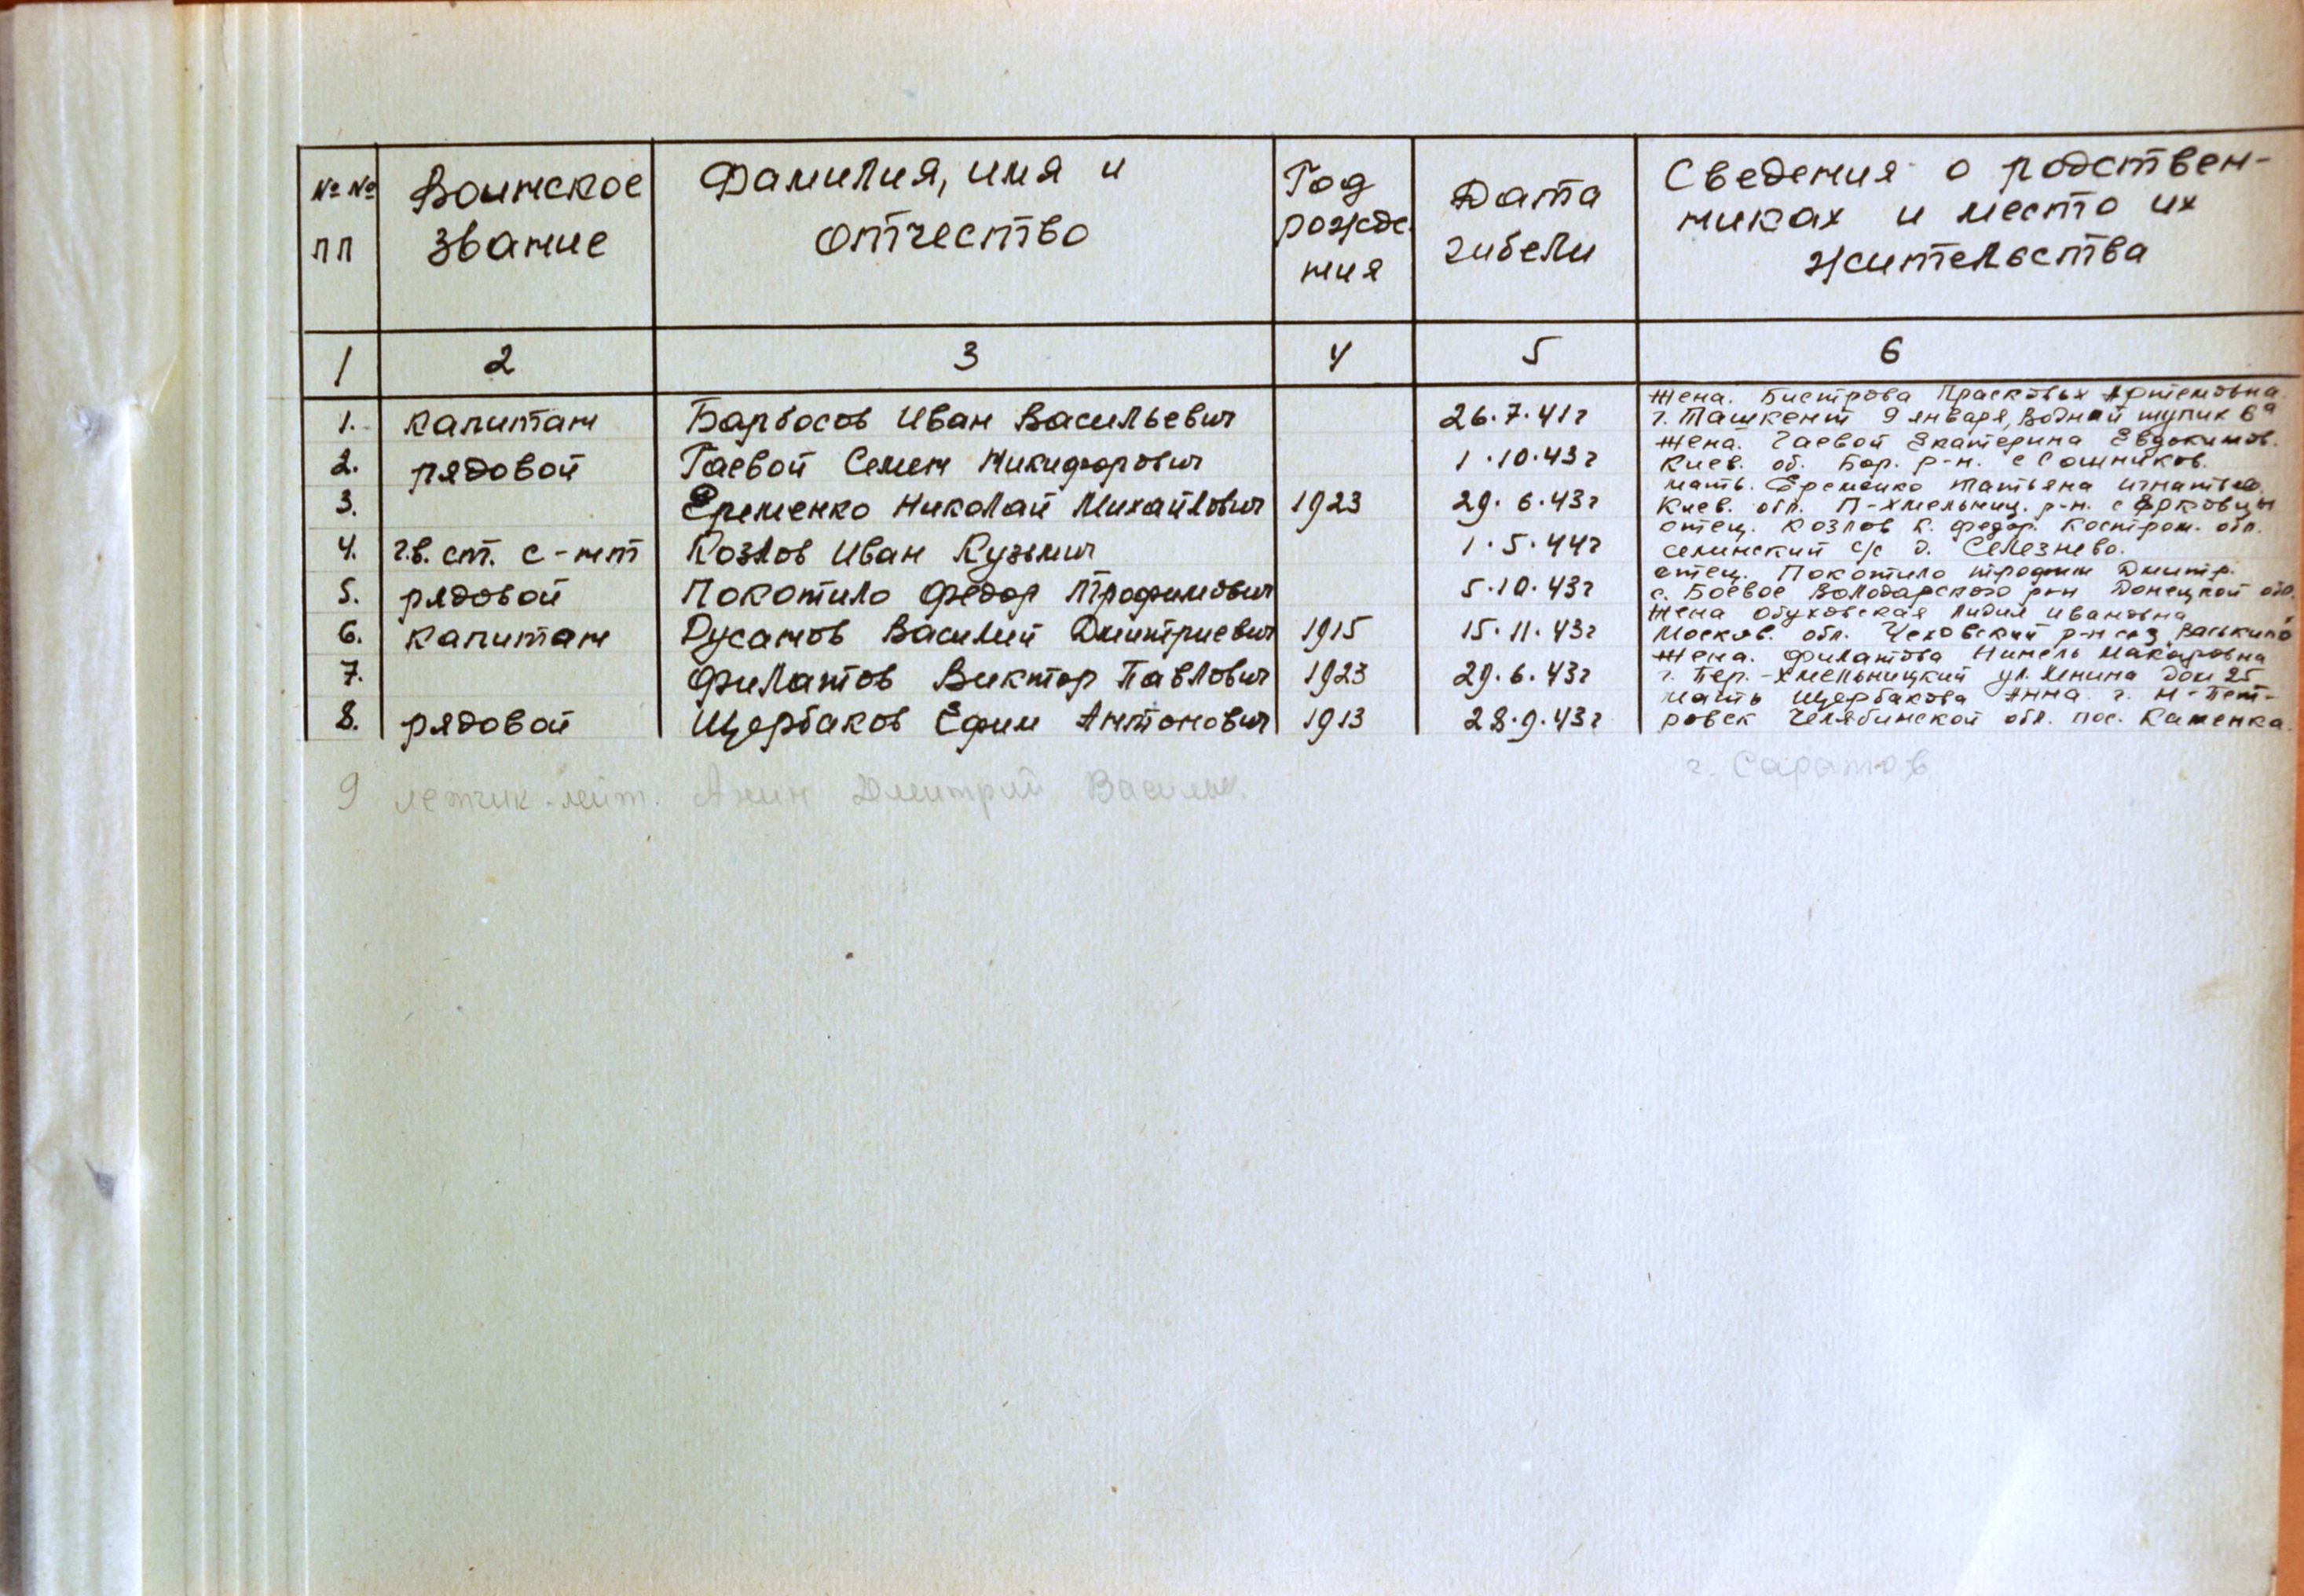 № № пп Воинское звание Фамилия, имя и отчество Год рожде ния Дата гибели Сведения о родствен-
никах и место их
жительства
1 2 3 4 5 6
Жена. Бистрова Прасковья Артемовна.
1. капитан Барбосов Иван Васильевич 26.7.41г г. Ташкент 9 января, Водный тупик 6а
Жена. Гаевой Екатерина Евдокимов.
2. рядовой Гаевой Семен Никифорович 1.10.43г Киев. об. Бор. р-н. с Сошников.
мать. Еременко Татьяна Игнатьев.
3. Еременко Николай Михайлович 1923 29.6.43г Киев. обл. П-Хмельниц. р-н. с Ерковцы
отец. Козлов К. Федор. Костром. обл.
4. г.в. ст. с-нт Козлов Иван Кузьмич 1.5.44г селинский с/с д. Селезнево.
отец. Покотило Трофим Дмитр.
5. рядовой Покотило Федор Трофимович 5.10.43г с. Боевое Володарского р-н Донецкой обл.
Жена Обуховская Лидия Ивановна
6. капитан Русанов Василий Дмитриевич 1915 15.11.43г Москов. обл. Чеховский р-н Васькино
Жена. Филатова Нинель Макаровна
7. Филатов Виктор Павлович 1923 29.6.43г г. Пер.-Хмельницкий ул. Ленина дом 25
мать Щербакова Анна. г. Н-Пет-
8. рядовой Щербаков Ефим Антонович 1913 28.9.43г ровск Челябинской обл. пос. Каменка.
9 летчик-лейт. Анин Дмитрий Василь. г. Саратов